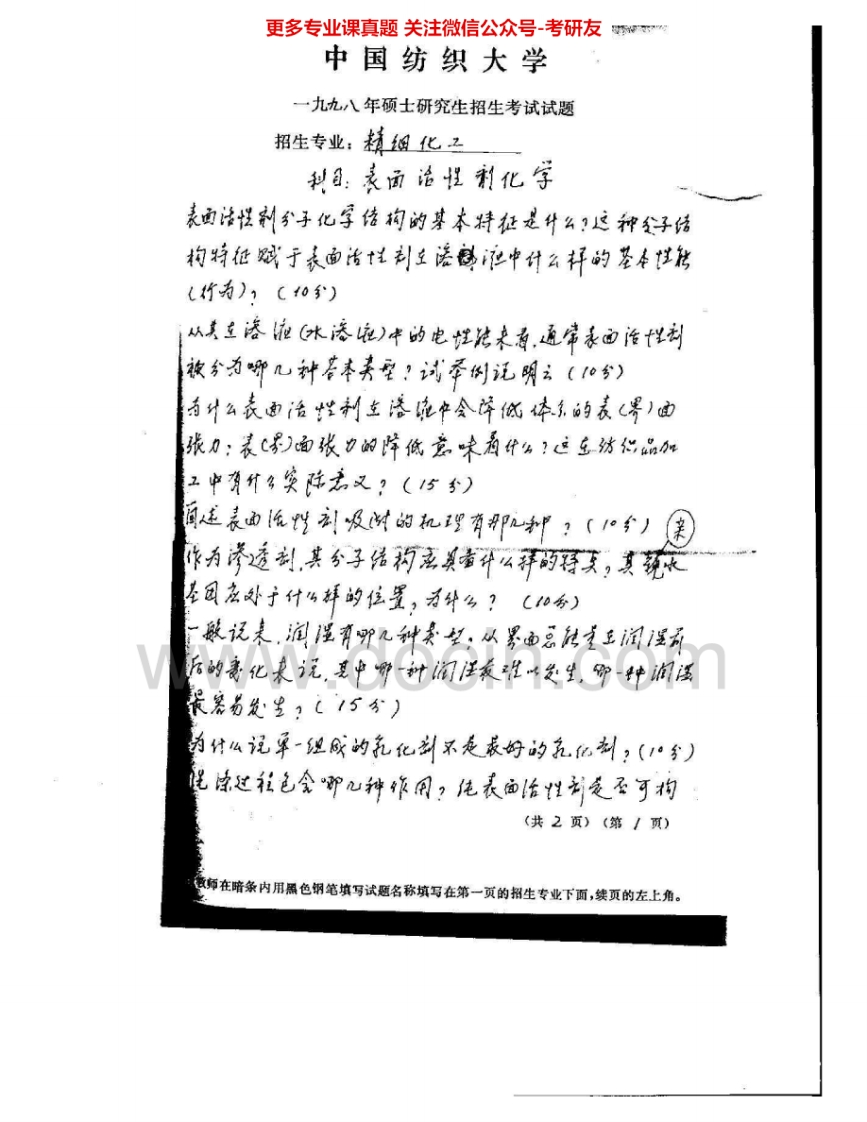 更多专业课真题 关注微信公众号-考研友
中国纺织大学
一九九八年硕士研究生招生考试试题
招生专业：精细化工
科目：表面活性剂化学
表面活性剂分子化学结构的基本特征是什么？这种分子结
构特征赋于表面活性剂在溶液中什么样的基本性能
（行为）？（10分）
从其在溶液（水溶液）中的电性能来看，通常表面活性剂
被分为哪几种基本类型？试举例说明之（10分）
为什么表面活性剂在溶液中会降低体系的表（界）面
张力；表（界）面张力的降低意味着什么？这在纺织品加
工中有什么实际意义？（15分）
简述表面活性剂吸附的机理有那几种？（10分）
亲
作为渗透剂，其分子结构应具有什么样的特点，其水
基团应处于什么样的位置，为什么？（10分）
一般说来，润湿有哪几种类型。从界面总能量在润湿前
后的变化来说，其中哪一种润湿最难以发生，哪一种润湿
最容易发生？（15分）
为什么说单一组成的乳化剂不是最好的乳化剂？（10分）
洗涤过程包含哪几种作用？纯表面活性剂是否可构
（共 2 页）（第 1 页）
教师在暗条内用黑色钢笔填写试题名称填写在第一页的招生专业下面，续页的左上角。
www.docin.com